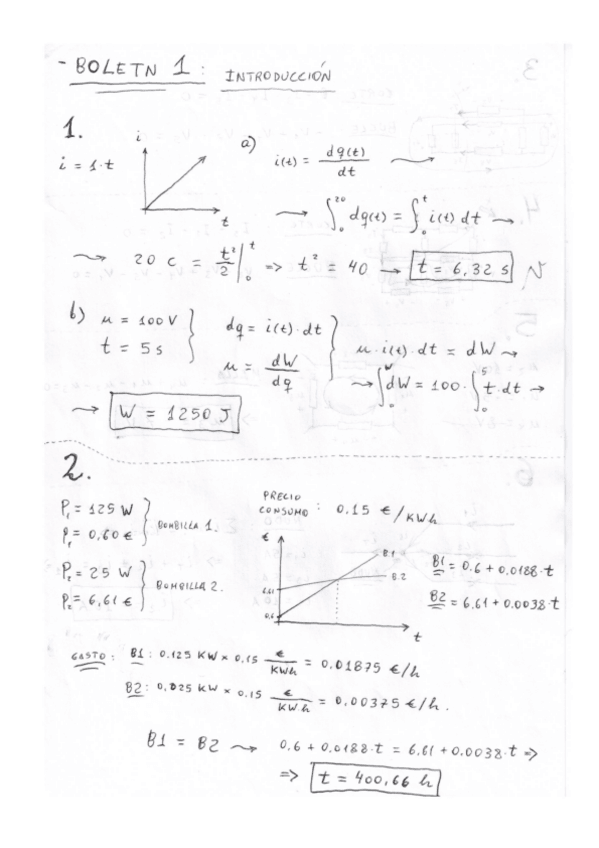 - BOLETN 1 : INTRODUCCIÓN
1.
i = 1·t
i
t
a) i(t) = dq(t)/dt ⟿
⟿ ∫₀²⁰ dq(t) = ∫₀ᵗ i(t) dt ⟿
⟿ 20 C = t²/2 |₀ᵗ => t² = 40 → t = 6,32 s
b) u = 100 V
t = 5 s
dq = i(t)·dt
u = dW/dq
u·i(t)·dt = dW ⟿
⟿ ∫₀ᵂ dW = 100·∫₀⁵ t·dt →
⟿ W = 1250 J
2.
P₁ = 125 W
P₁ = 0,60 €
BOMBILLA 1.
P₂ = 25 W
P₂ = 6,61 €
BOMBILLA 2.
PRECIO CONSUMO : 0,15 €/KWh
€
B1
B2
6,61
0,6
t
B1 = 0.6 + 0.0188·t
B2 = 6.61 + 0.0038·t
GASTO : B1: 0.125 KW × 0,15 €/KWh = 0.01875 €/h
B2: 0,025 KW × 0.15 €/KWh = 0,00375 €/h.
B1 = B2 ⟿ 0.6 + 0.0188·t = 6.61 + 0.0038·t =>
=> t = 400,66 h